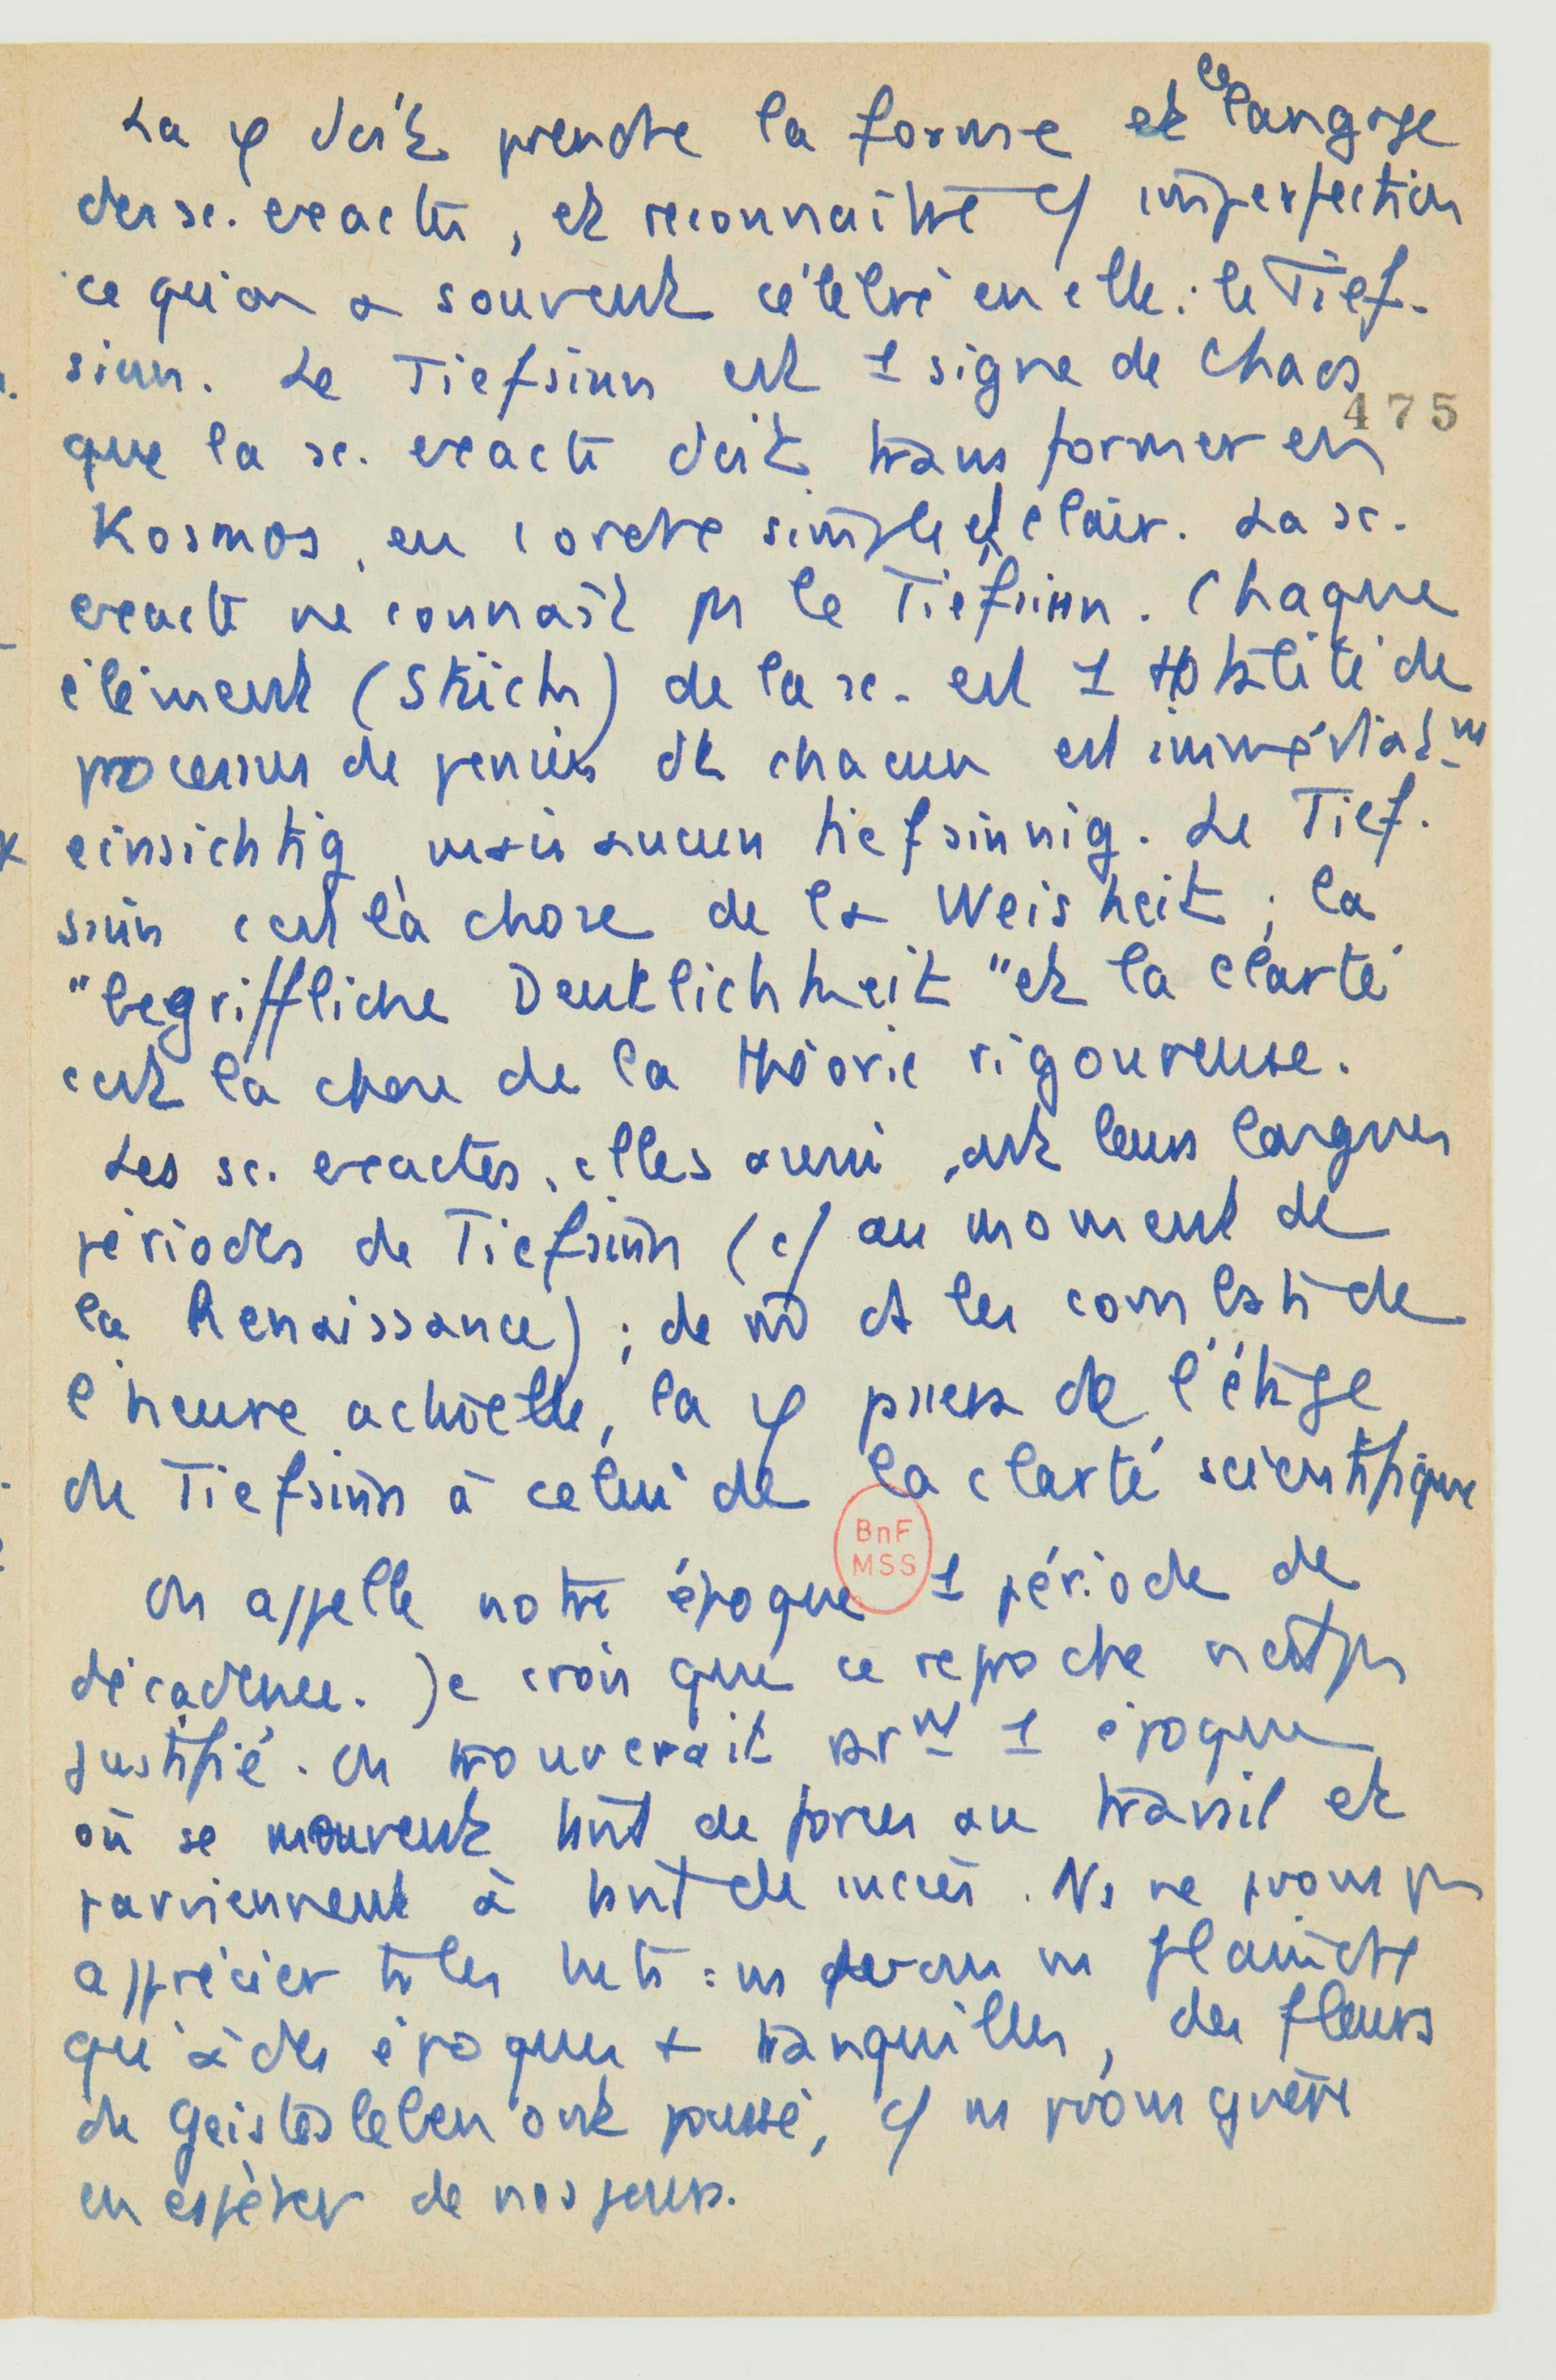 La φ doit prendre la forme et le langage
des sc. exactes, et reconnaître c/ imperfection
ce qu'on a souvent célébré en elle : le Tief-
sinn. Le Tiefsinn est 1 signe de chaos
475
que la sc. exacte doit transformer en
Kosmos, en 1 ordre simple et clair. La sc.
exacte ne connaît ps le Tiefsinn. Chaque
élément (Stück) de la sc. est 1 totalité de
processus de pensées dt chacun est immédiatmt
einsichtig, mais aucun tiefsinnig. Le Tief-
sinn c'est là chose de la Weisheit ; la
"begriffliche Deutlichkeit" et la clarté
c'est la chose de la théorie rigoureuse.
Les sc. exactes, elles aussi, ont leurs longues
périodes de Tiefsinn (c/ au moment de
la Renaissance) ; de m̄ ds les combats de
l'heure actuelle, la φ passera de l'étage
de Tiefsinn à celui de la clarté scientifique
BnF
MSS
On appelle notre époque 1 période de
décadence. Je crois que ce reproche n'est ps
justifié. On trouverait rarmt 1 époque
où se meuvent tant de forces au travail et
parviennent à tant de succès. Ns ne pvons ps
apprécier ts les : ns devons ns plaindre
qu'à des époques + tranquilles, des fleurs
du Geistesleben ont poussé, c/ ns pvons guère
en espérer de nos jours.